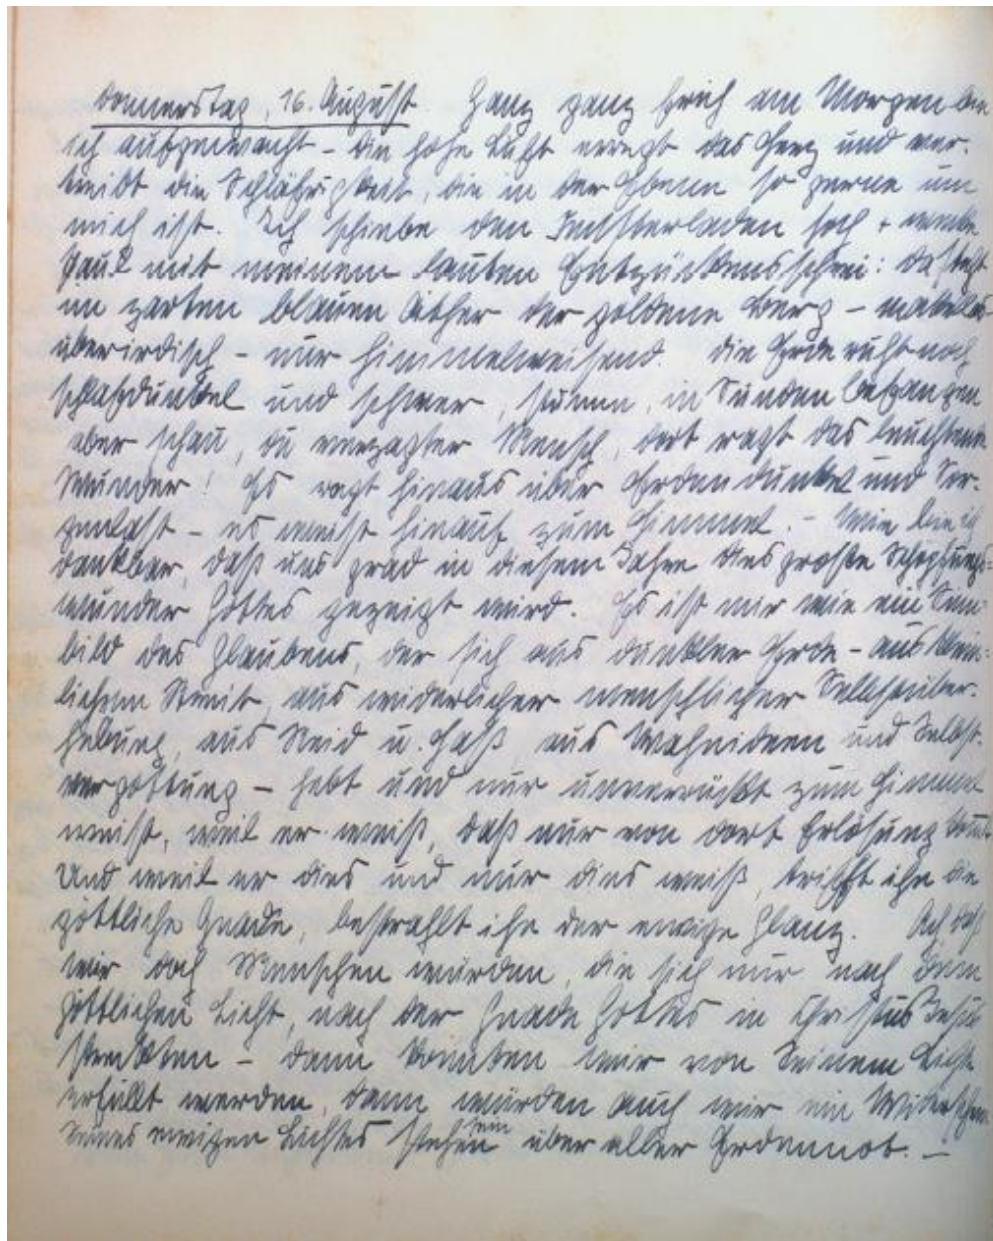 Donnerstag, 16. August. Ganz ganz früh am Morgen bin
ich aufgewacht – die hohe Luft erregt das Herz und ver-
treibt die Schläfrigkeit, die in der Ebene so gerne um
mich ist. Ich schiebe den Fensterladen hoch + wecke
Paul mit meinem lauten Entzückensschrei: da steht
im zarten blauen Äther der goldene Berg – makellos
überirdisch – nur himmelweisend. Die Erde ruht noch
schlafdunkel und schwer, stumm, in Sünden befangen
aber schau, du verzagter Mensch, dort ragt das leuchtende
Wunder! Es ragt hinaus über Erdendunkel und Ser-
genlast – es weist hinauf zum Himmel. – Wie bin ich
dankbar, daß uns grad in diesem Jahre dies große Schöpfungs-
wunder Gottes gezeigt wird. Es ist mir wie ein Sinn-
bild des Glaubens, der sich aus dunkler Erde – aus klein-
lichem Streit, aus widerlicher menschlicher Selbstüber-
hebung, aus Neid u. Haß, aus Wahnideen und Selbst-
vergottung – hebt und nur unverrückt zum Himmel
weist, weil er weiß, daß nur von dort Erlösung kommt.
Und weil er dies und nur dies weiß, trifft ihn die
göttliche Gnade, bestrahlt ihn der ewige Glanz. Ach daß
wir doch Menschen würden, die sich nur nach dem
göttlichen Licht, nach der Gnade Gottes in Christus Jesus
streckten – dann könnten wir von Seinem Licht
erfüllt werden, dann würden auch wir ein Widerschein
Seines ewigen Lichtes sein über aller Erdennot. –